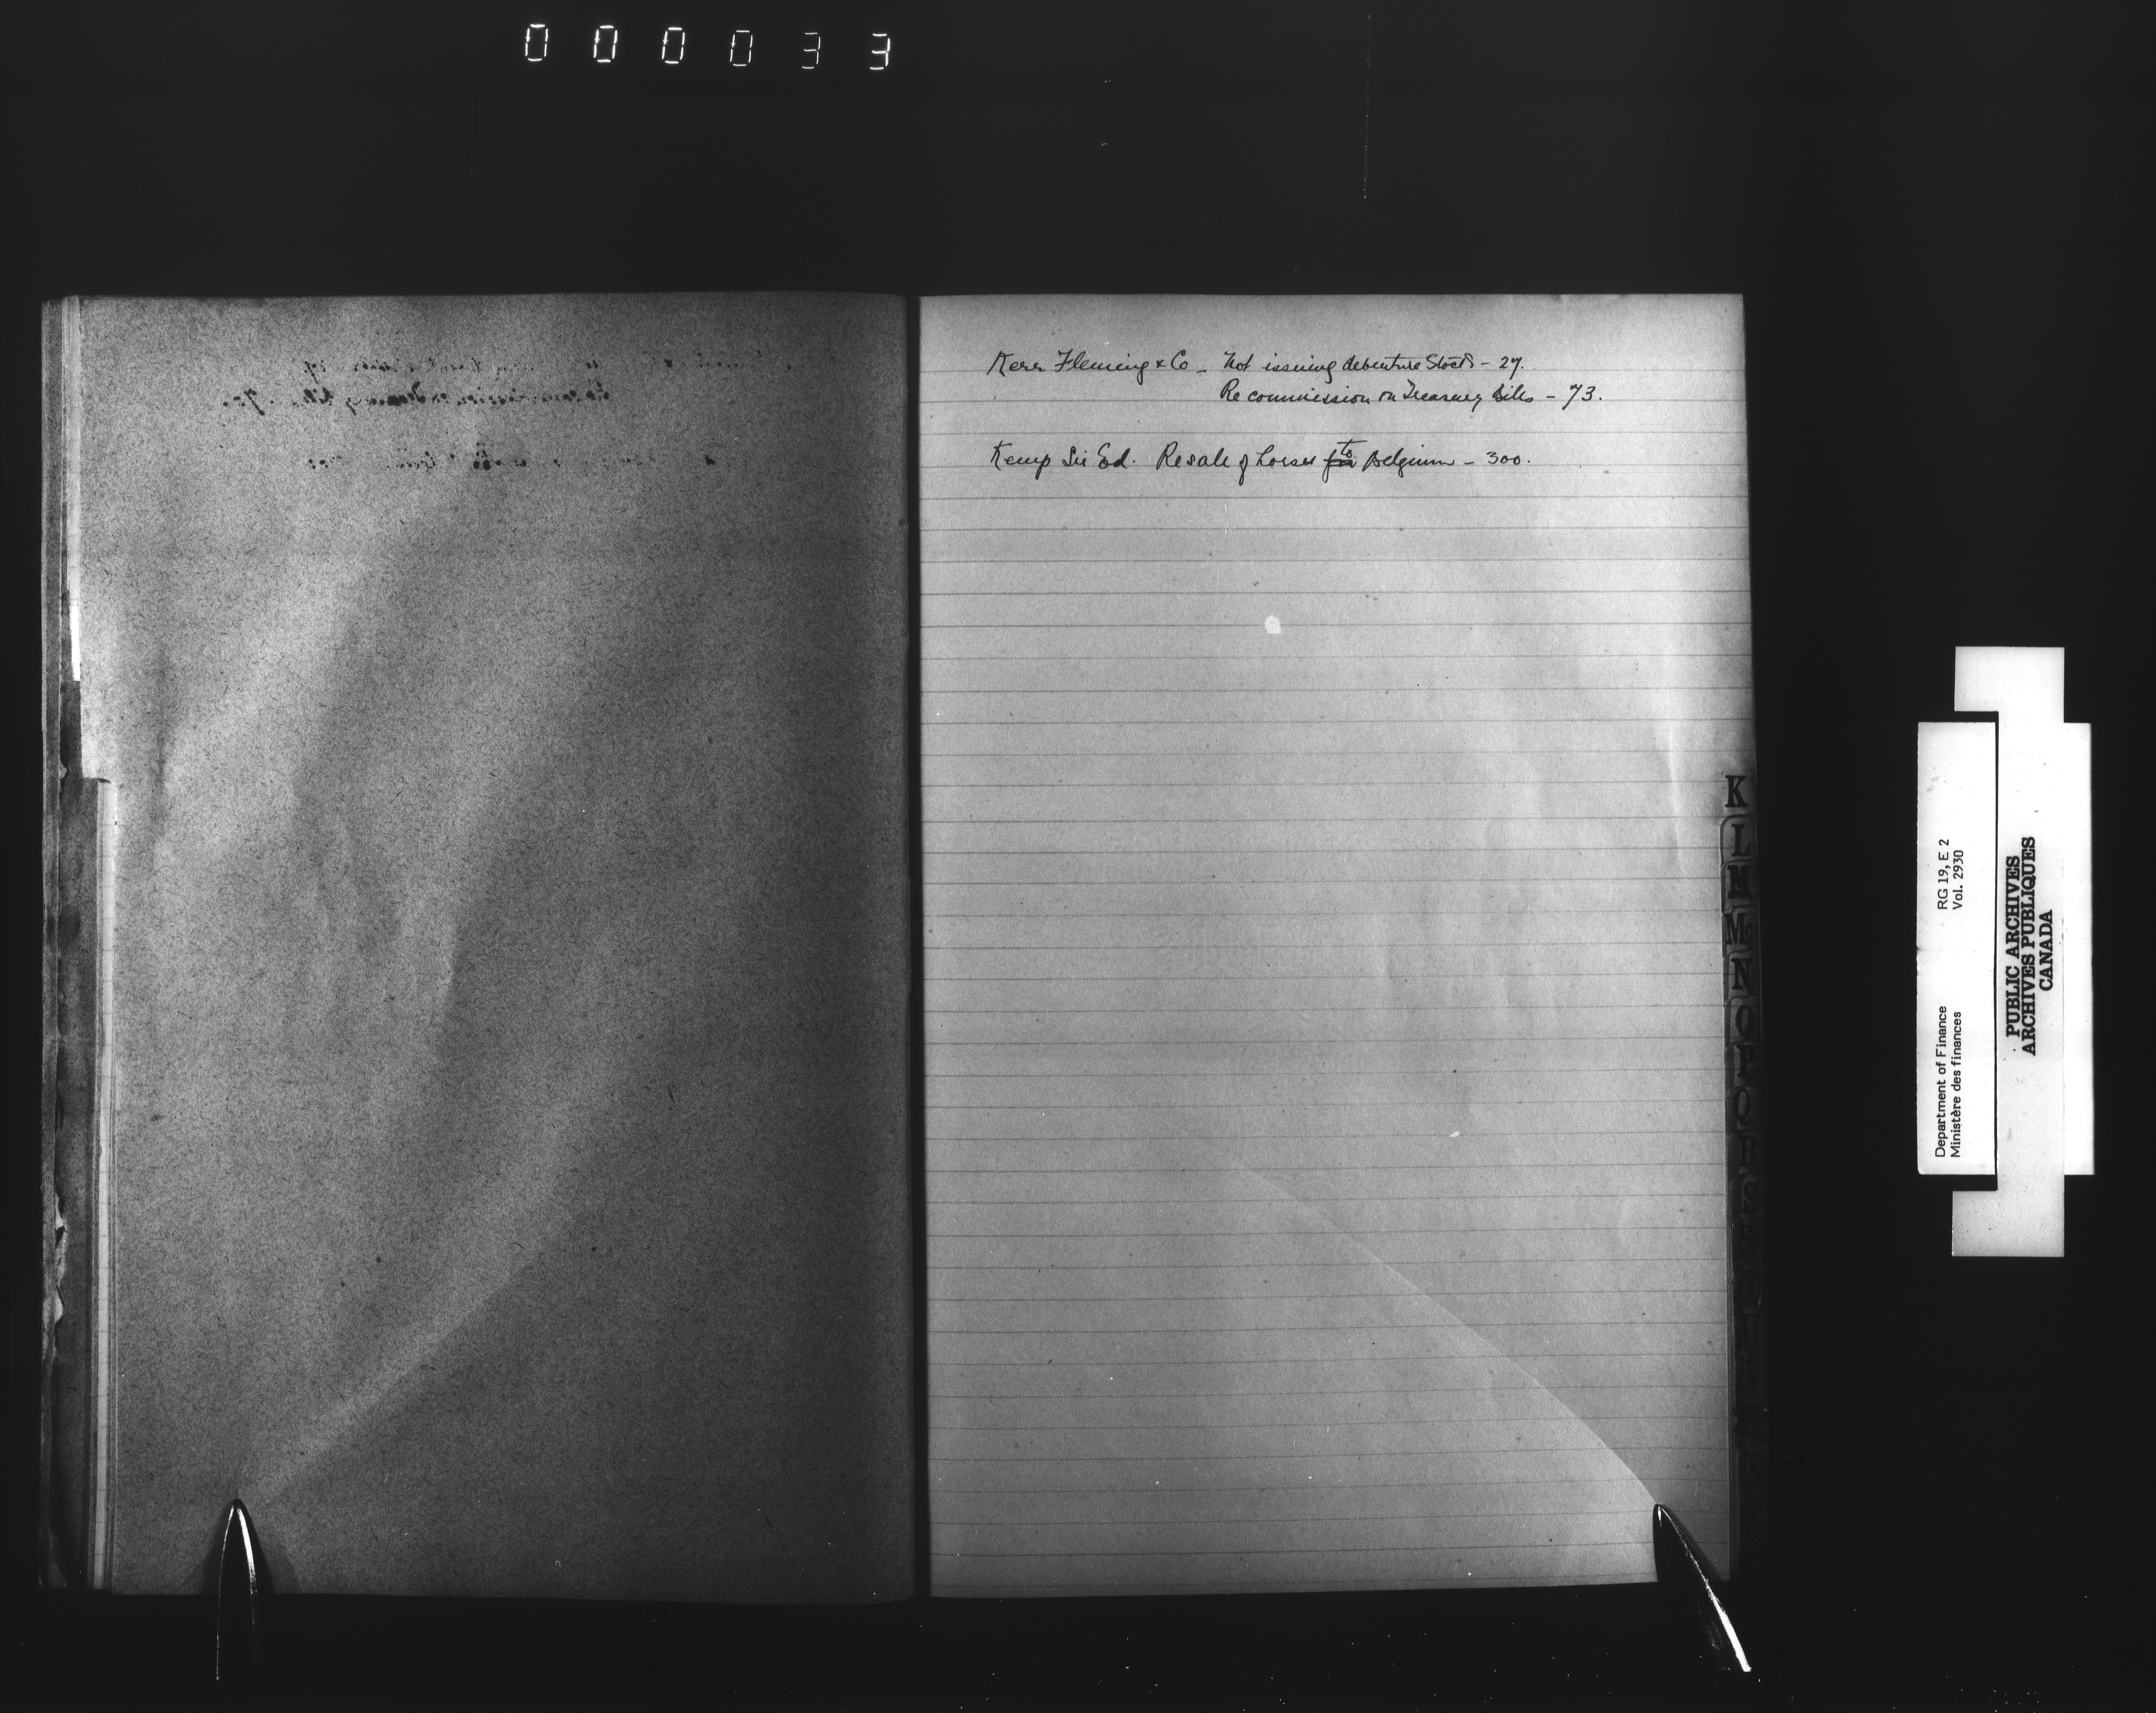 000033
Kerr Fleming & Co – Not issuing debenture Stock – 27.
Re commission on Treasury Bills – 73.
Kemp Sir Ed. Re sale of horses for to Belgium – 300.
K
L
M
Mc
N
O
P
Q
R
S
Department of Finance RG 19, E 2
Ministère des finances Vol. 2930
PUBLIC ARCHIVES
ARCHIVES PUBLIQUES
CANADA